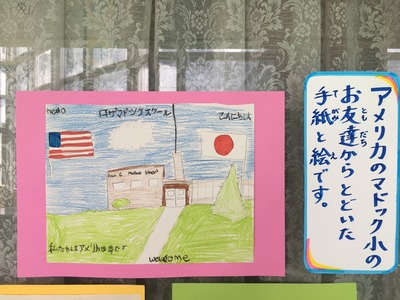 hello
ロサマドックスクール
こんにちは
私たちはアメリカ
welcome
アメリカのマドック小の
お友達からとどいた
手紙と絵です。